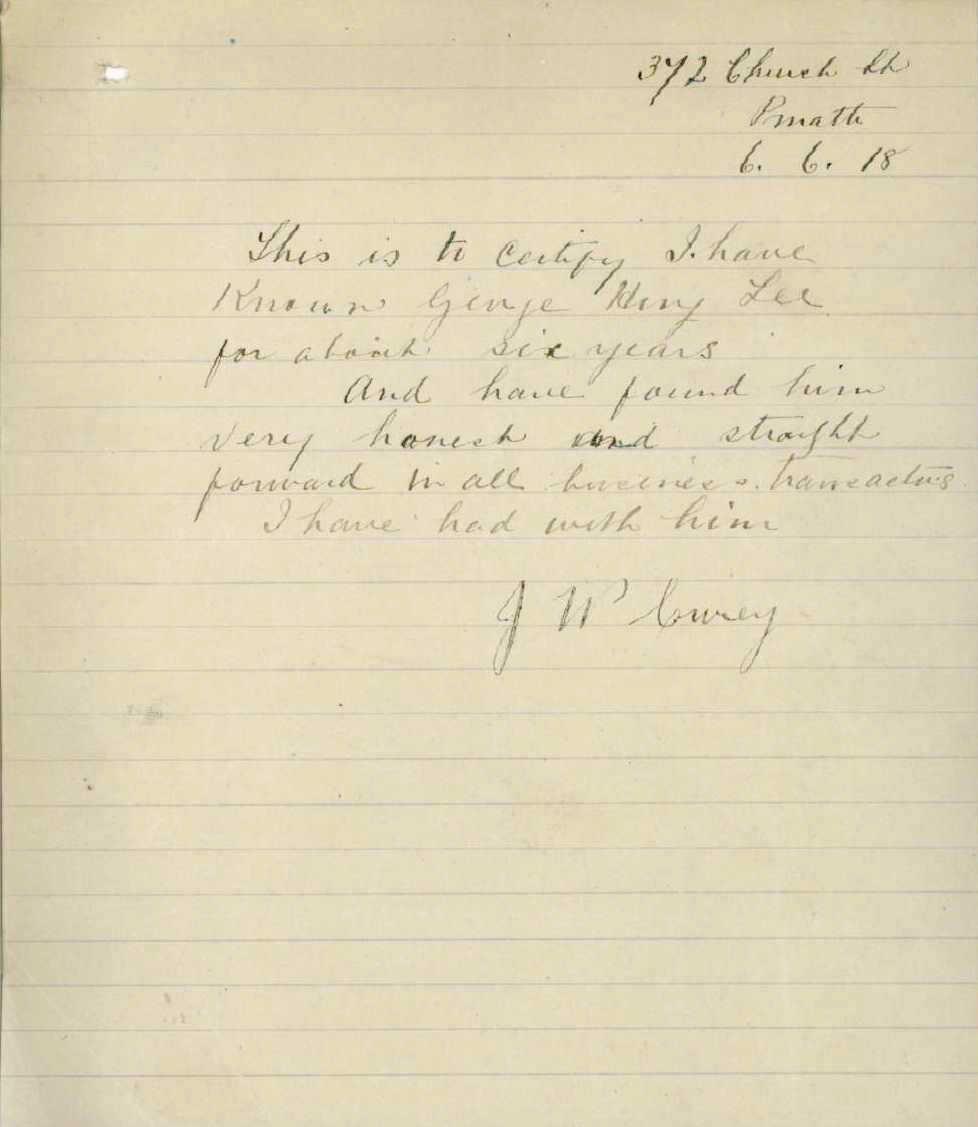 372 Church St
Pmatta
6. 6. 18
This is to certify I have
Known George Hing Lee
for about six years
And have found him
very honest and straight
forward in all business transactions
I have had with him
J W